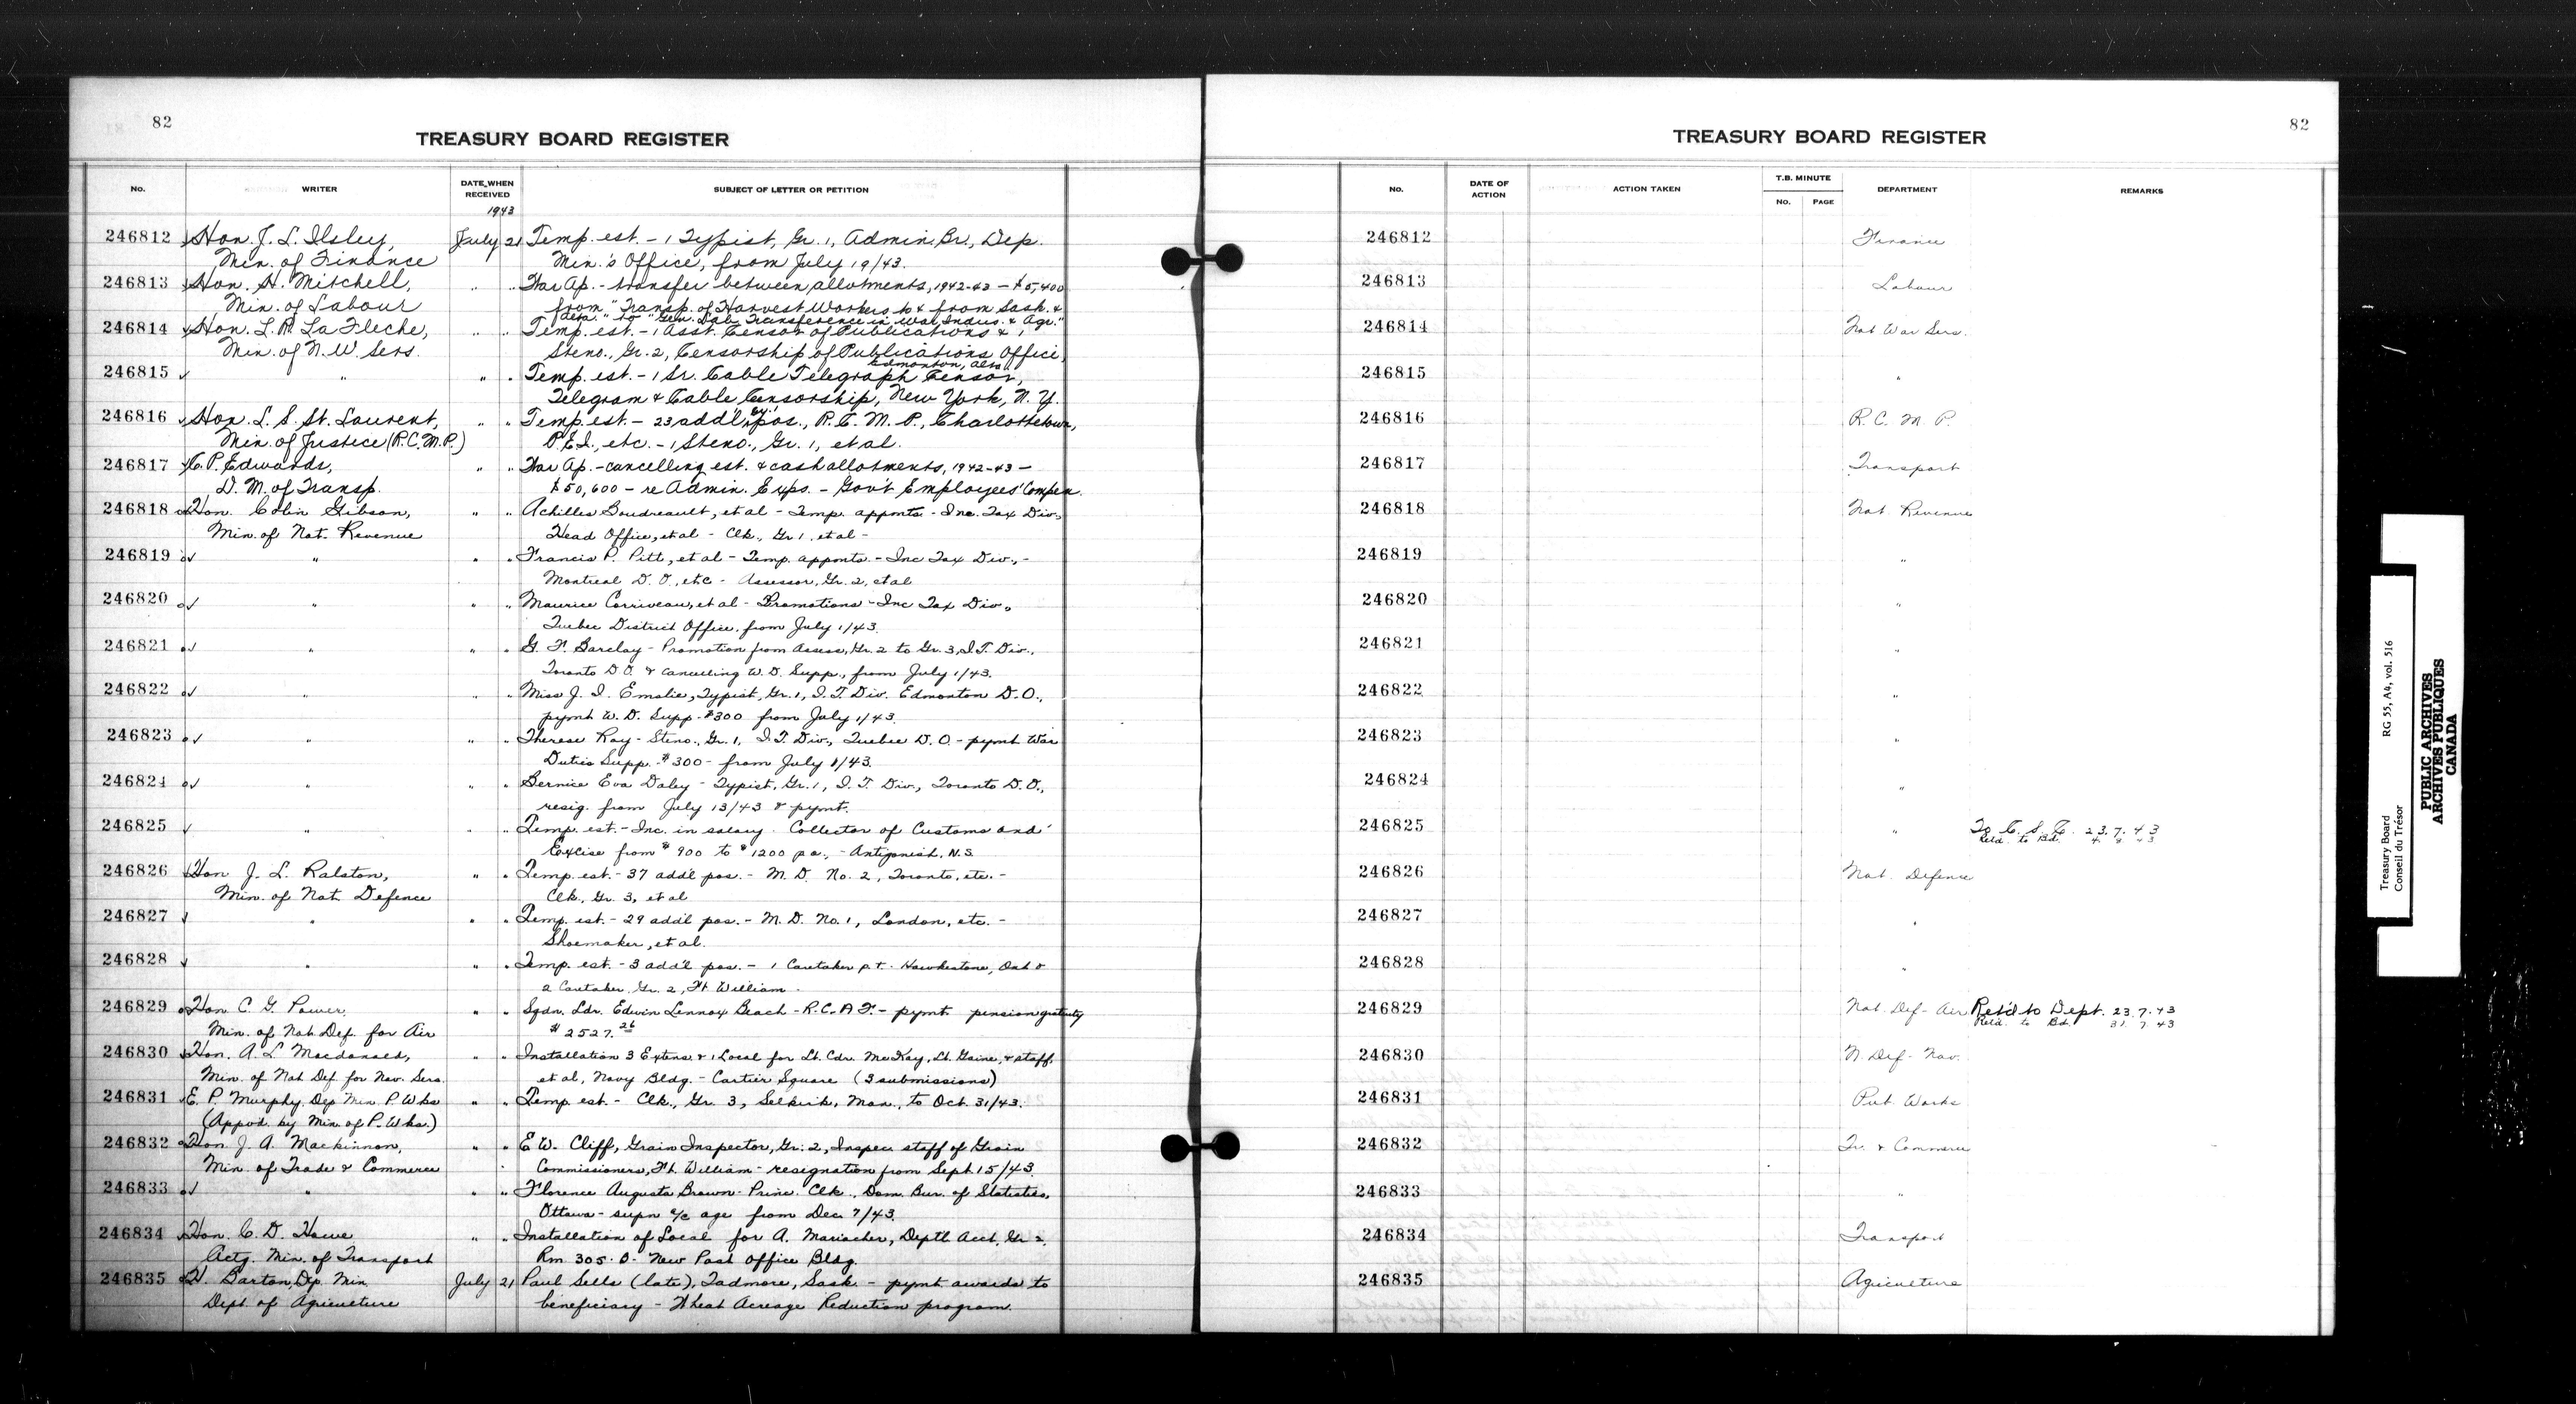 82
TREASURY BOARD REGISTER
No. WRITER DATE WHEN RECEIVED SUBJECT OF LETTER OR PETITION
1943
246812 Hon. J. L. Ilsley, July 21 Temp. est. - 1 Typist, Gr. 1, Admin. Br., Dep.
Min. of Finance Min.'s Office, from July 19/43.
246813 Hon. H. Mitchell, " " War Ap. - transfer between allotments, 1942-43 - $5,400
Min. of Labour from "Transp. of Harvest Workers to & from Sask. &
Alta." to "Gen. Labr Transference in War Indus. & Agr."
246814 Hon. L. R. La Fleche, " " Temp. est. - 1 Asst. Censor of Publications & 1
Min. of N. W. Sers. Steno., Gr. 2, Censorship of Publications Office,
Edmonton, Alta.
246815 " " " Temp. est. - 1 Sr. Cable Telegraph Censor,
Telegram & Cable Censorship, New York, N. Y.
246816 Hon. L. S. St. Laurent, " " Temp. est. - 23 add'l pos., R. C. M. P., Charlottetown,
Min. of Justice (R.C.M.P.) P.E.I., etc. - 1 Steno., Gr. 1, et al.
246817 C. P. Edwards, " " War Ap. - cancelling est. & cash allotments, 1942-43 -
D. M. of Transp. $50,600 - re Admin. Exps. - Gov't Employees' Compen.
246818 Hon. Colin Gibson, " " Achilles Boudreault, et al - Temp. appnts. - Inc. Tax Div.,
Min. of Nat. Revenue Head Office, et al - Clk., Gr 1, et al -
246819 " " " Francis P. Pitt, et al - Temp. appnts. - Inc Tax Div., -
Montreal D. O., etc - Assessor, Gr. 2, et al
246820 " " " Maurice Corriveau, et al - Promotions - Inc Tax Div.
Quebec District Office, from July 1/43.
246821 " " " G. F. Barclay - Promotion from Assess, Gr. 2 to Gr. 3, I. T. Div.,
Toronto D O. & Cancelling W. D. Supp., from July 1/43.
246822 " " " Miss J. I. Emslie, Typist, Gr. 1, I. T. Div. Edmonton D. O.,
pymt W. D. Supp. $300 from July 1/43.
246823 " " " Therese Roy - Steno., Gr. 1, I. T. Div., Quebec D. O. - pymt War
Duties Supp. $300 - from July 1/43.
246824 " " " Bernice Eva Daley - Typist, Gr. 1, I. T. Div., Toronto D. O.,
resig. from July 13/43 & pymt.
246825 " " " Temp. est. - Inc. in salary. Collector of Customs and
Excise from $900 to $1200 pa., - Antigonish, N.S.
246826 Hon J. L. Ralston, " " Temp. est. - 37 add'l pos. - M. D. No. 2, Toronto, etc. -
Min. of Nat. Defence Clk., Gr. 3, et al
246827 " " " Temp. est. - 29 add'l pos. - M. D. No. 1, London, etc. -
Shoemaker, et al.
246828 " " " Temp. est. - 3 add'l pos. - 1 Caretaker p.t. - Hawkestone, Ont &
2 Caretaker, Gr. 2, Ft William -
246829 Hon C. G. Power, " " Sqdn. Ldr. Edwin Lennox Beach - R.C.A.F. - pymt pension gratuity
Min. of Nat Def. for Air $2527.26
246830 Hon. A. L. Macdonald, " " Installation 3 Extens. & 1 Local for Lt. Cdr. McKay, Lt. Gaine, & staff,
Min. of Nat Def. for Nav. Sers. et al, Navy Bldg. - Cartier Square (3 submissions)
246831 E. P. Murphy, Dep Min P. Wks " " Temp. est. - Clk., Gr. 3, Selkirk, Man., to Oct. 31/43.
(Appvd. by Min. of P. Wks.)
246832 Hon. J. A. Mackinnon, " " E W. Cliff, Grain Inspector, Gr. 2, Inspec. staff of Grain
Min. of Trade & Commerce Commissioners, Ft. William - resignation from Sept. 15/43.
246833 " " " Florence Augusta Brown - Princ. Clk., Dom. Bur. of Statistics,
Ottawa - supn a/c age from Dec 7/43.
246834 Hon. C. D. Howe " " Installation of Local for A. Mariacher, Deptl Acct. Gr 2,
Actg. Min. of Transport Rm 305-D- New Post Office Bldg.
246835 H. Barton, Dep. Min. July 21 Paul Sells (late), Tadmore, Sask. - pymt awards to
Dept. of Agriculture beneficiary - Wheat Acreage Reduction program.
82
TREASURY BOARD REGISTER
No. DATE OF ACTION ACTION TAKEN T.B. MINUTE No. PAGE DEPARTMENT REMARKS
246812 Finance
246813 Labour
246814 Nat War Sers.
246815 "
246816 R. C. M. P.
246817 Transport
246818 Nat Revenue
246819 "
246820 "
246821 "
246822 "
246823 "
246824 "
246825 " To C. S. C. 23. 7. 43
Retd. to Bd. 4 8 43
246826 Nat. Defence
246827 "
246828 "
246829 Nat. Def - Air Ret'd to Dept. 23. 7. 43
Retd. to Bd. 31 7 43
246830 N. Def - Nav.
246831 Pub. Works
246832 Tr. & Commerce
246833 "
246834 Transport
246835 Agriculture
Treasury Board RG 55, A4, vol. 516
Conseil du Trésor
PUBLIC ARCHIVES
ARCHIVES PUBLIQUES
CANADA